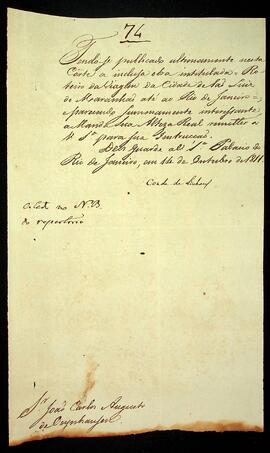 74
Tendo se publicado ultimamente nesta
Corte a inclusa obra intitulada = Ro-
teiro da Viagem da Cidade de São Luiz
do Maranhão até ao Rio de Janeiro =
e parecendo summamente interessante,
a Manda Sua Alteza Real remetter a
V. Sª para sua Instrucção.
Deos Guarde a V. Sª Palacio do
Rio de Janeiro, em 14 de Outubro de 1811.
Conde de Linhares
do repertorio
Sr. João Carlos Augusto
de Oeynhausen